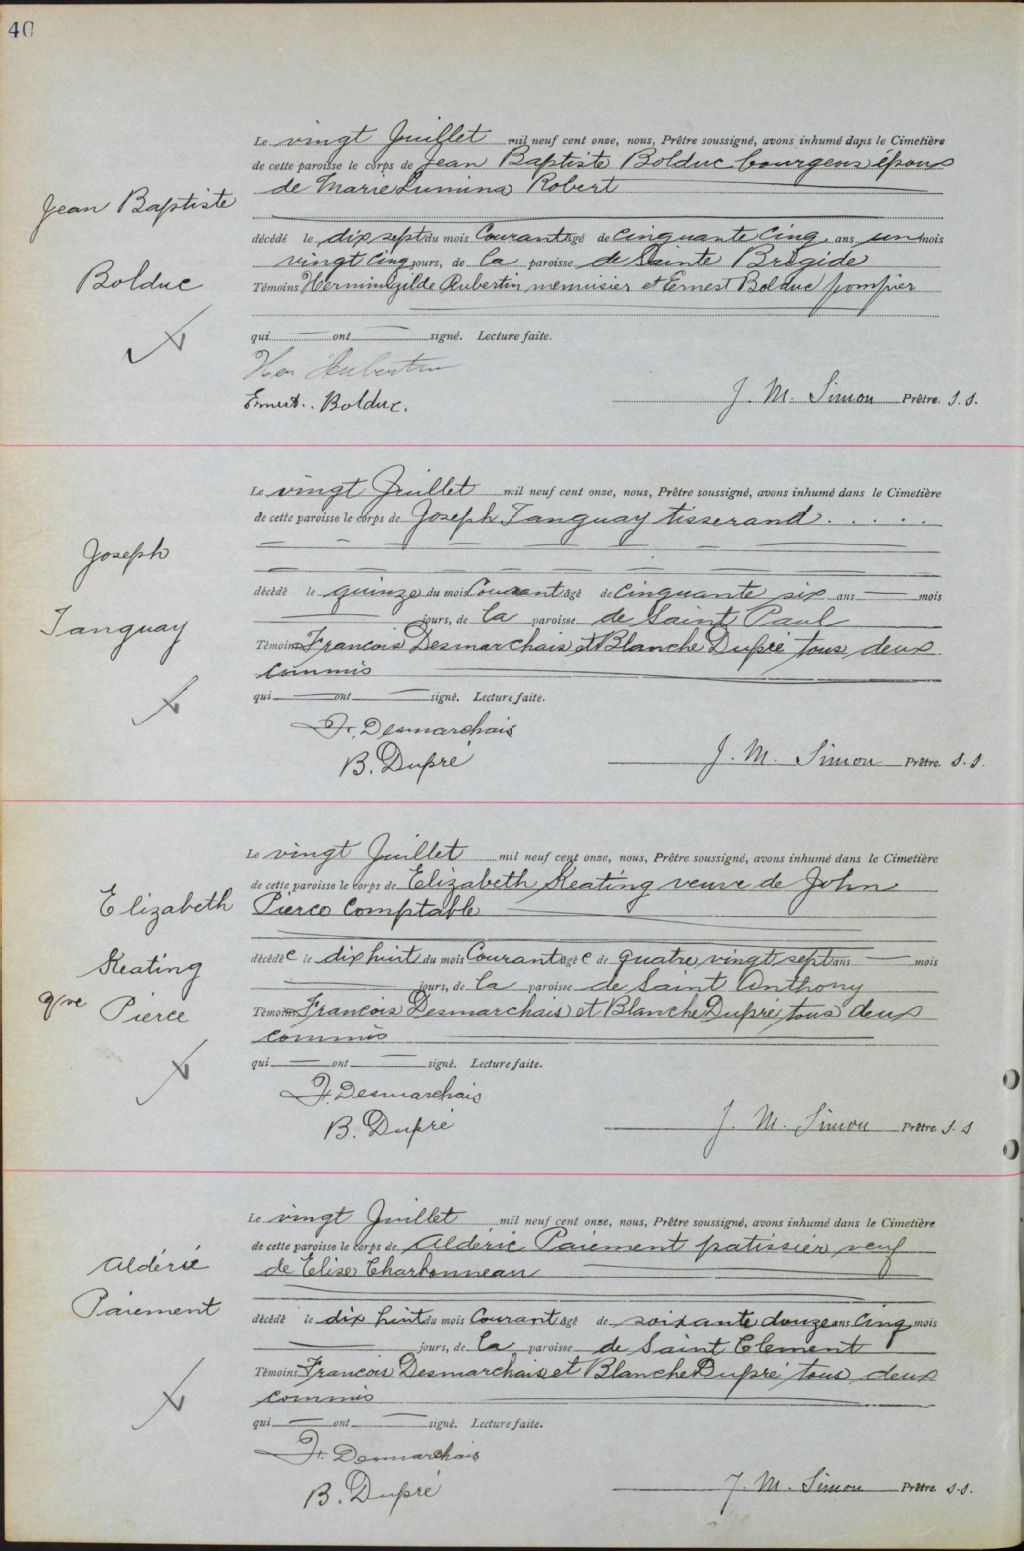 40
Le vingt Juillet mil neuf cent onze, nous, Prêtre soussigné, avons inhumé dans le Cimetière
de cette paroisse le corps de Jean Baptiste Bolduc bourgeois époux
de Marie Lumina Robert
Jean Baptiste
Bolduc
décédé le dix sept du mois Courant âgé de Cinquante Cinq ans un mois
vingt cinq jours, de la paroisse de Sainte Brigide
Témoins Herminigilde Aubertin menuisier et Ernest Bolduc pompier
qui ont signé. Lecture faite.
Her Aubertin
Ernest. Bolduc.
J. M. Simon Prêtre. S.S.
Le vingt Juillet mil neuf cent onze, nous, Prêtre soussigné, avons inhumé dans le Cimetière
de cette paroisse le corps de Joseph Tanguay tisserand . . . . .
Joseph
Tanguay
décédé le quinze du mois Courant âgé de Cinquante six ans — mois
— jours, de la paroisse de Saint Paul
Témoins Francois Desmarchais et Blanche Dupré tous deux
commis
qui ont signé. Lecture faite.
Fr. Desmarchais
B. Dupré
J. M. Simon Prêtre. S.S.
Le vingt Juillet mil neuf cent onze, nous, Prêtre soussigné, avons inhumé dans le Cimetière
de cette paroisse le corps de Elizabeth Keating veuve de John
Pierce Comptable
Elizabeth
Keating
Pierce
décédée le dix huit du mois Courant âgée de quatre vingt sept ans — mois
— jours, de la paroisse de Saint Anthony
Témoins Francois Desmarchais et Blanche Dupré tous deux
commis
qui ont signé. Lecture faite.
F. Desmarchais
B. Dupré
J. M. Simon Prêtre S.S
Le vingt Juillet mil neuf cent onze, nous, Prêtre soussigné, avons inhumé dans le Cimetière
de cette paroisse le corps de Aldéric Paiement patissier veuf
de Elise Charbonneau
Aldéric
Paiement
décédé le dix huit du mois Courant âgé de soixante douze ans Cinq mois
— jours, de la paroisse de Saint Clement
Témoins Francois Desmarchais et Blanche Dupré tous deux
commis
qui ont signé. Lecture faite.
Fr. Desmarchais
B. Dupré
J. M. Simon Prêtre S.S.